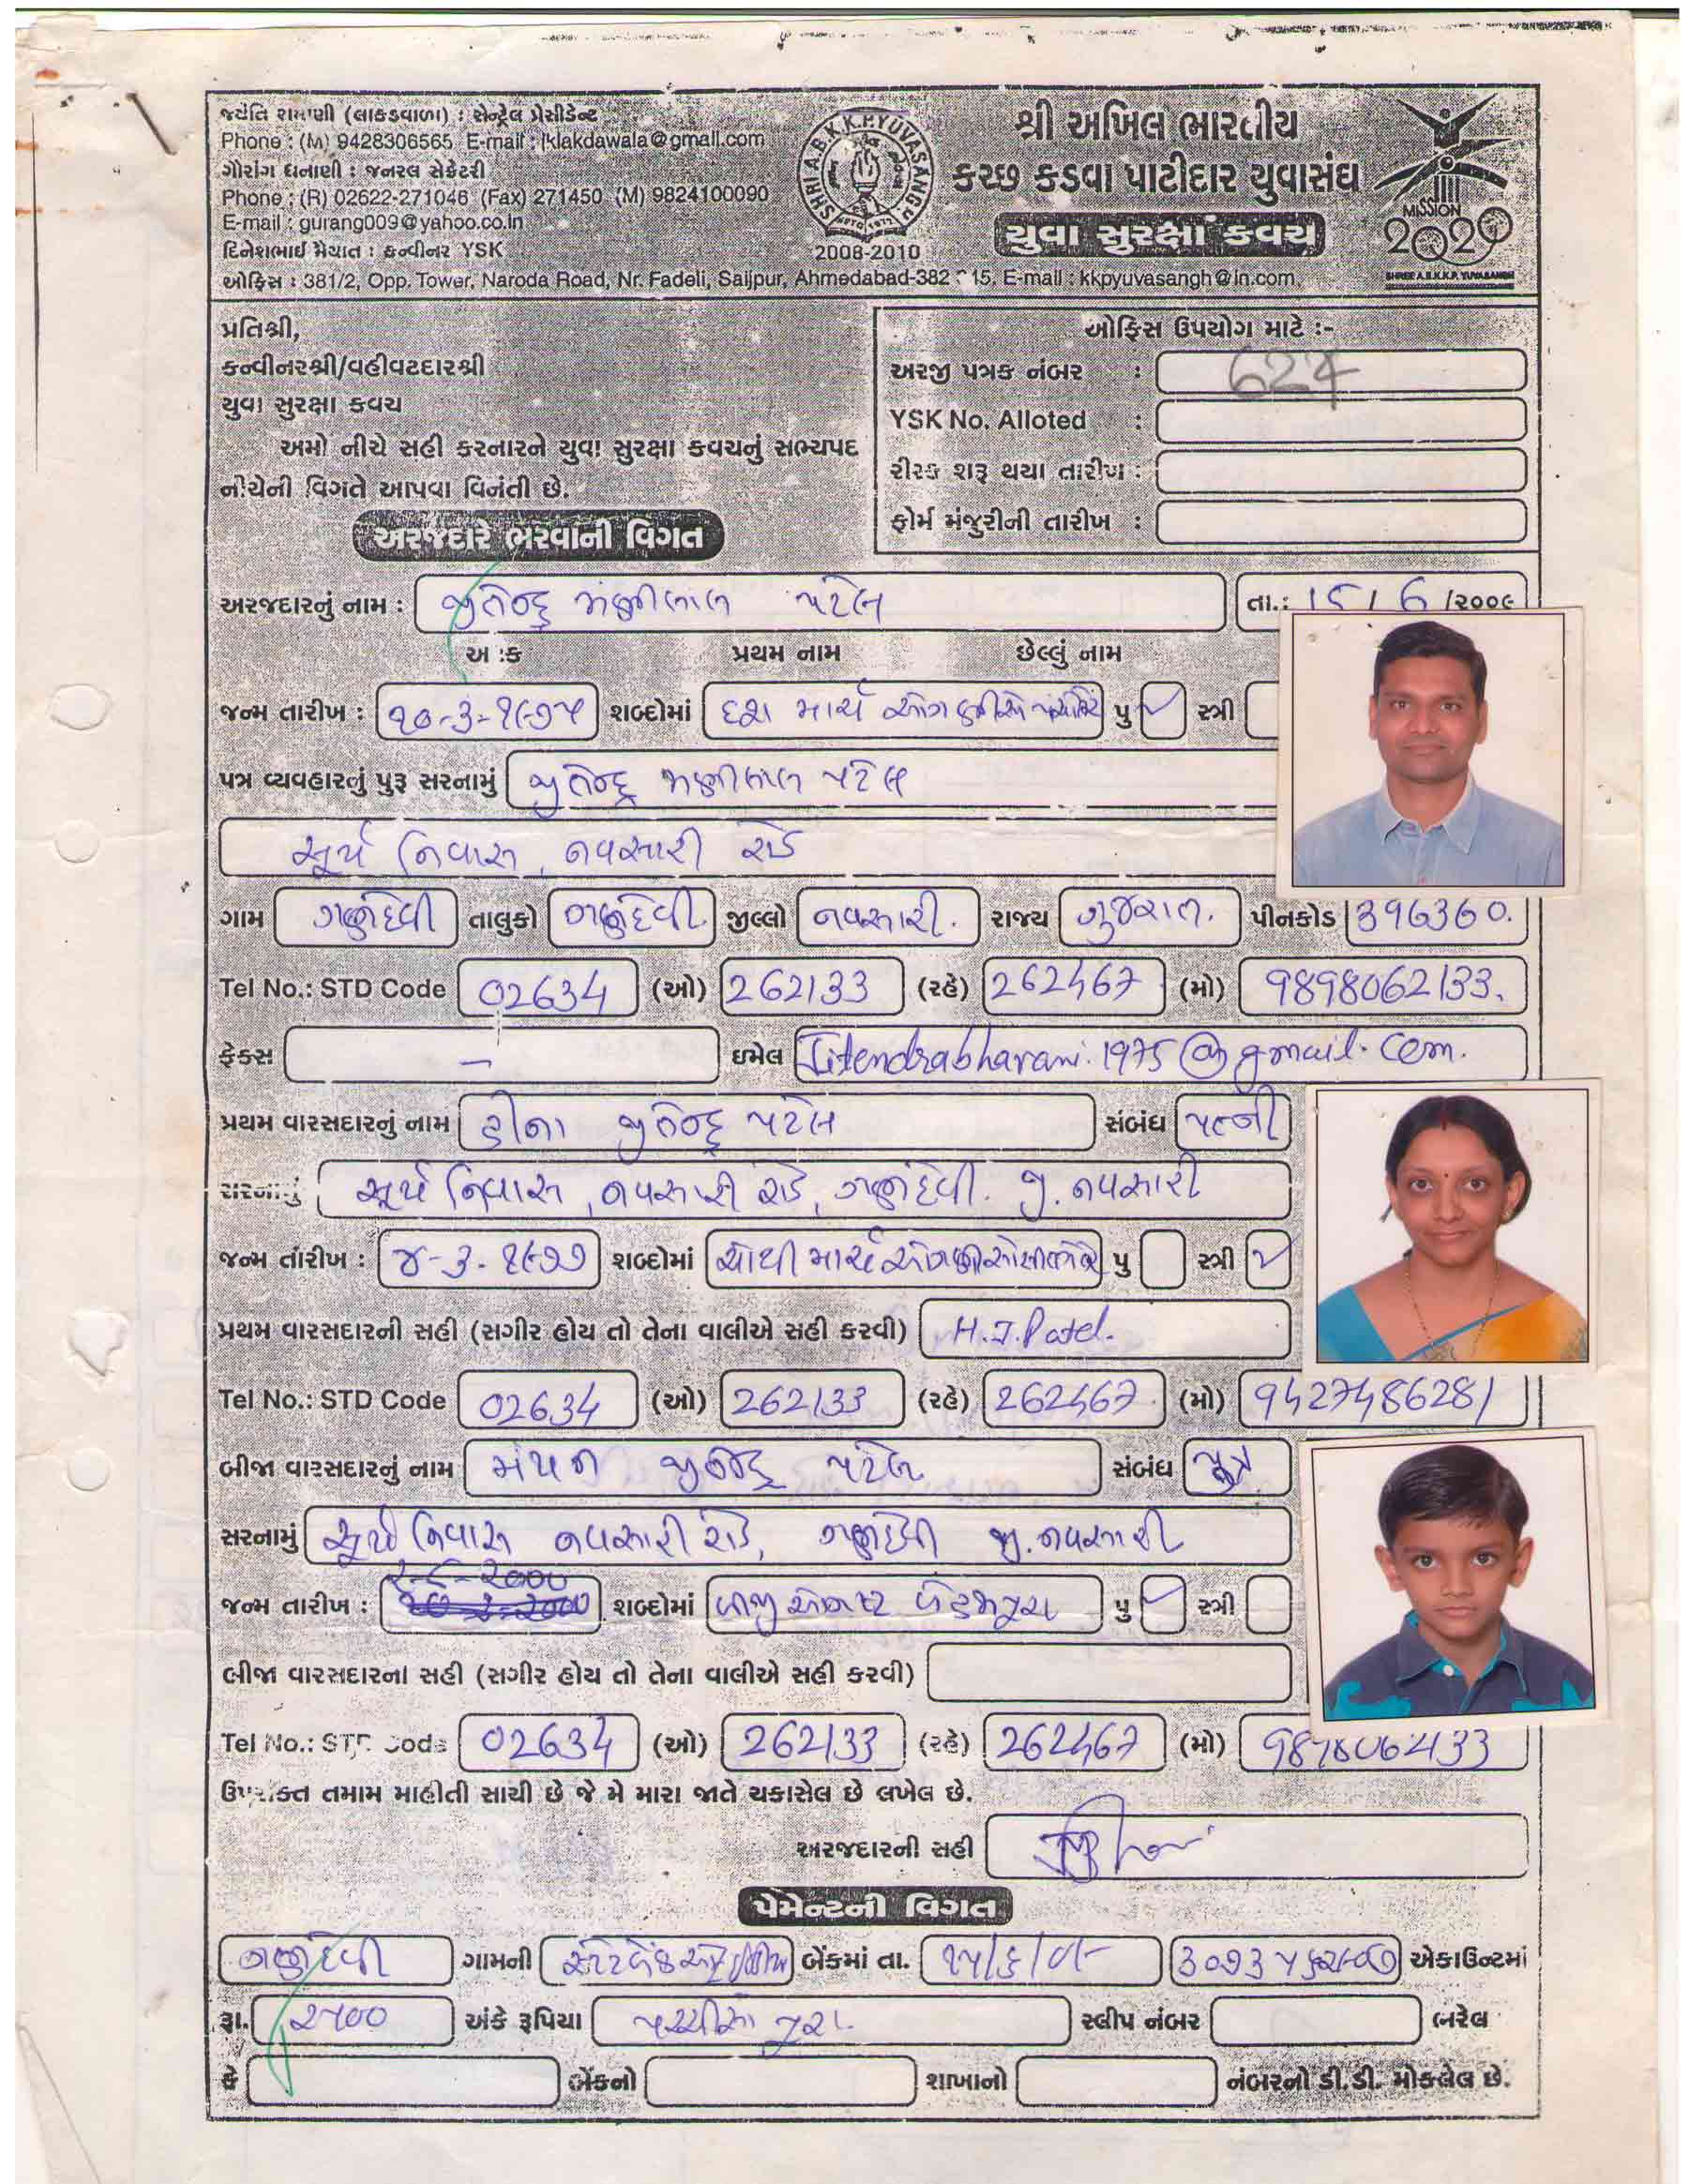 જયંતિ રામાણી (લાકડાવાળા) : સેન્ટ્રલ પ્રેસીડેન્ટ
Phone : (M) 9428306565 E-mail : lklakdawala@gmail.com
ગૌરાંગ ધનાણી : જનરલ સેક્રેટરી
Phone : (R) 02622-271046 (Fax) 271450 (M) 9824100090
E-mail : gurang009@yahoo.co.in
દિનેશભાઈ મેયાત : કન્વીનર YSK
SHRI A.B.K.K.P. YUVASANGH
2008-2010
શ્રી અખિલ ભારતીય
કચ્છ કડવા પાટીદાર યુવાસંઘ
યુવા સુરક્ષા કવચ
MISSION
2020
SHREE A.B.K.K.P. YUVASANGH
ઓફિસ : 381/2, Opp. Tower, Naroda Road, Nr. Fadeli, Saijpur, Ahmedabad-382 15. E-mail : kkpyuvasangh@in.com.
પ્રતિશ્રી,
કન્વીનરશ્રી/વહીવટદારશ્રી
યુવા સુરક્ષા કવચ
અમો નીચે સહી કરનારને યુવા સુરક્ષા કવચનું સભ્યપદ
નીચેની વિગતે આપવા વિનંતી છે.
ઓફિસ ઉપયોગ માટે :-
અરજી પત્રક નંબર : 627
YSK No. Alloted :
રીસ્ક શરૂ થયા તારીખ :
ફોર્મ મંજુરીની તારીખ :
અરજદારે ભરવાની વિગત
અરજદારનું નામ : જીતેન્દ્ર મણીલાલ પટેલ તા.: 15 / 6 /૨૦૦૯
અટક પ્રથમ નામ છેલ્લું નામ
જન્મ તારીખ : ૧૦-૩-૧૯૭૫ શબ્દોમાં દશ માર્ચ પુ ✓ સ્ત્રી
પત્ર વ્યવહારનું પુરૂ સરનામું જીતેન્દ્ર મણીલાલ પટેલ
સૂર્ય નિવાસ, નવસારી રોડ
ગામ ગણદેવી તાલુકો ગણદેવી. જીલ્લો નવસારી. રાજ્ય ગુજરાત. પીનકોડ 396360.
Tel No.: STD Code 02634 (ઓ) 262133 (રહે) 262467 (મો) 9898062133.
ફેક્સ - ઇમેલ Jitendrabharani.1975@gmail.com.
પ્રથમ વારસદારનું નામ હીના જીતેન્દ્ર પટેલ સંબંધ પત્ની
સરનામું સૂર્ય નિવાસ, નવસારી રોડ, ગણદેવી. જી. નવસારી
જન્મ તારીખ : ૪-૩-૧૯૭૭ શબ્દોમાં ચોથી માર્ચ પુ સ્ત્રી ✓
પ્રથમ વારસદારની સહી (સગીર હોય તો તેના વાલીએ સહી કરવી) H.J.Patel.
Tel No.: STD Code 02634 (ઓ) 262133 (રહે) 262467 (મો) 9427486281
બીજા વારસદારનું નામ મંથન જીતેન્દ્ર પટેલ સંબંધ પુત્ર
સરનામું સૂર્ય નિવાસ નવસારી રોડ, ગણદેવી જી. નવસારી
જન્મ તારીખ : ૨-૮-૨૦૦૦ શબ્દોમાં બીજી ઓગષ્ટ બે હજાર પુ ✓ સ્ત્રી
બીજા વારસદારની સહી (સગીર હોય તો તેના વાલીએ સહી કરવી)
Tel No.: STD Code 02634 (ઓ) 262133 (રહે) 262467 (મો) 9898062133
ઉપરોક્ત તમામ માહીતી સાચી છે જે મે મારા જાતે ચકાસેલ છે લખેલ છે.
અરજદારની સહી
પેમેન્ટની વિગત
ગણદેવી ગામની સ્ટેટ બેંક ઓફ ઈન્ડિયા બેંકમાં તા. ૧૫/૬/૦૯ એકાઉન્ટમાં
રૂા. ૨૫૦૦ અંકે રૂપિયા પચ્ચીસો પુરા. સ્લીપ નંબર ભરેલ
છે બેંકનો શાખાનો નંબરનો ડી.ડી. મોકલેલ છે.